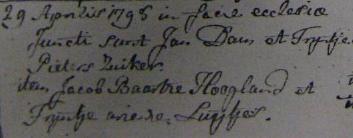 29 Aprilis 1798 in facie ecclesiae
Juncti sunt Jan Dam et Tryntje
Pieters Zuiker.
item Jacob Baartze Hoogland et
Tryntje Luytjes.